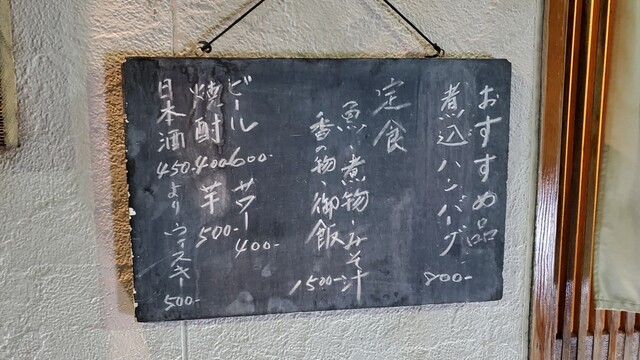 おすすめ品
煮込ハンバーグ
800-
定食
魚・煮物・みそ汁
香の物・御飯
1500-
ビール
600-
サワー
400-
焼酎
400
芋
500-
日本酒
450-より
ウィスキー
500-